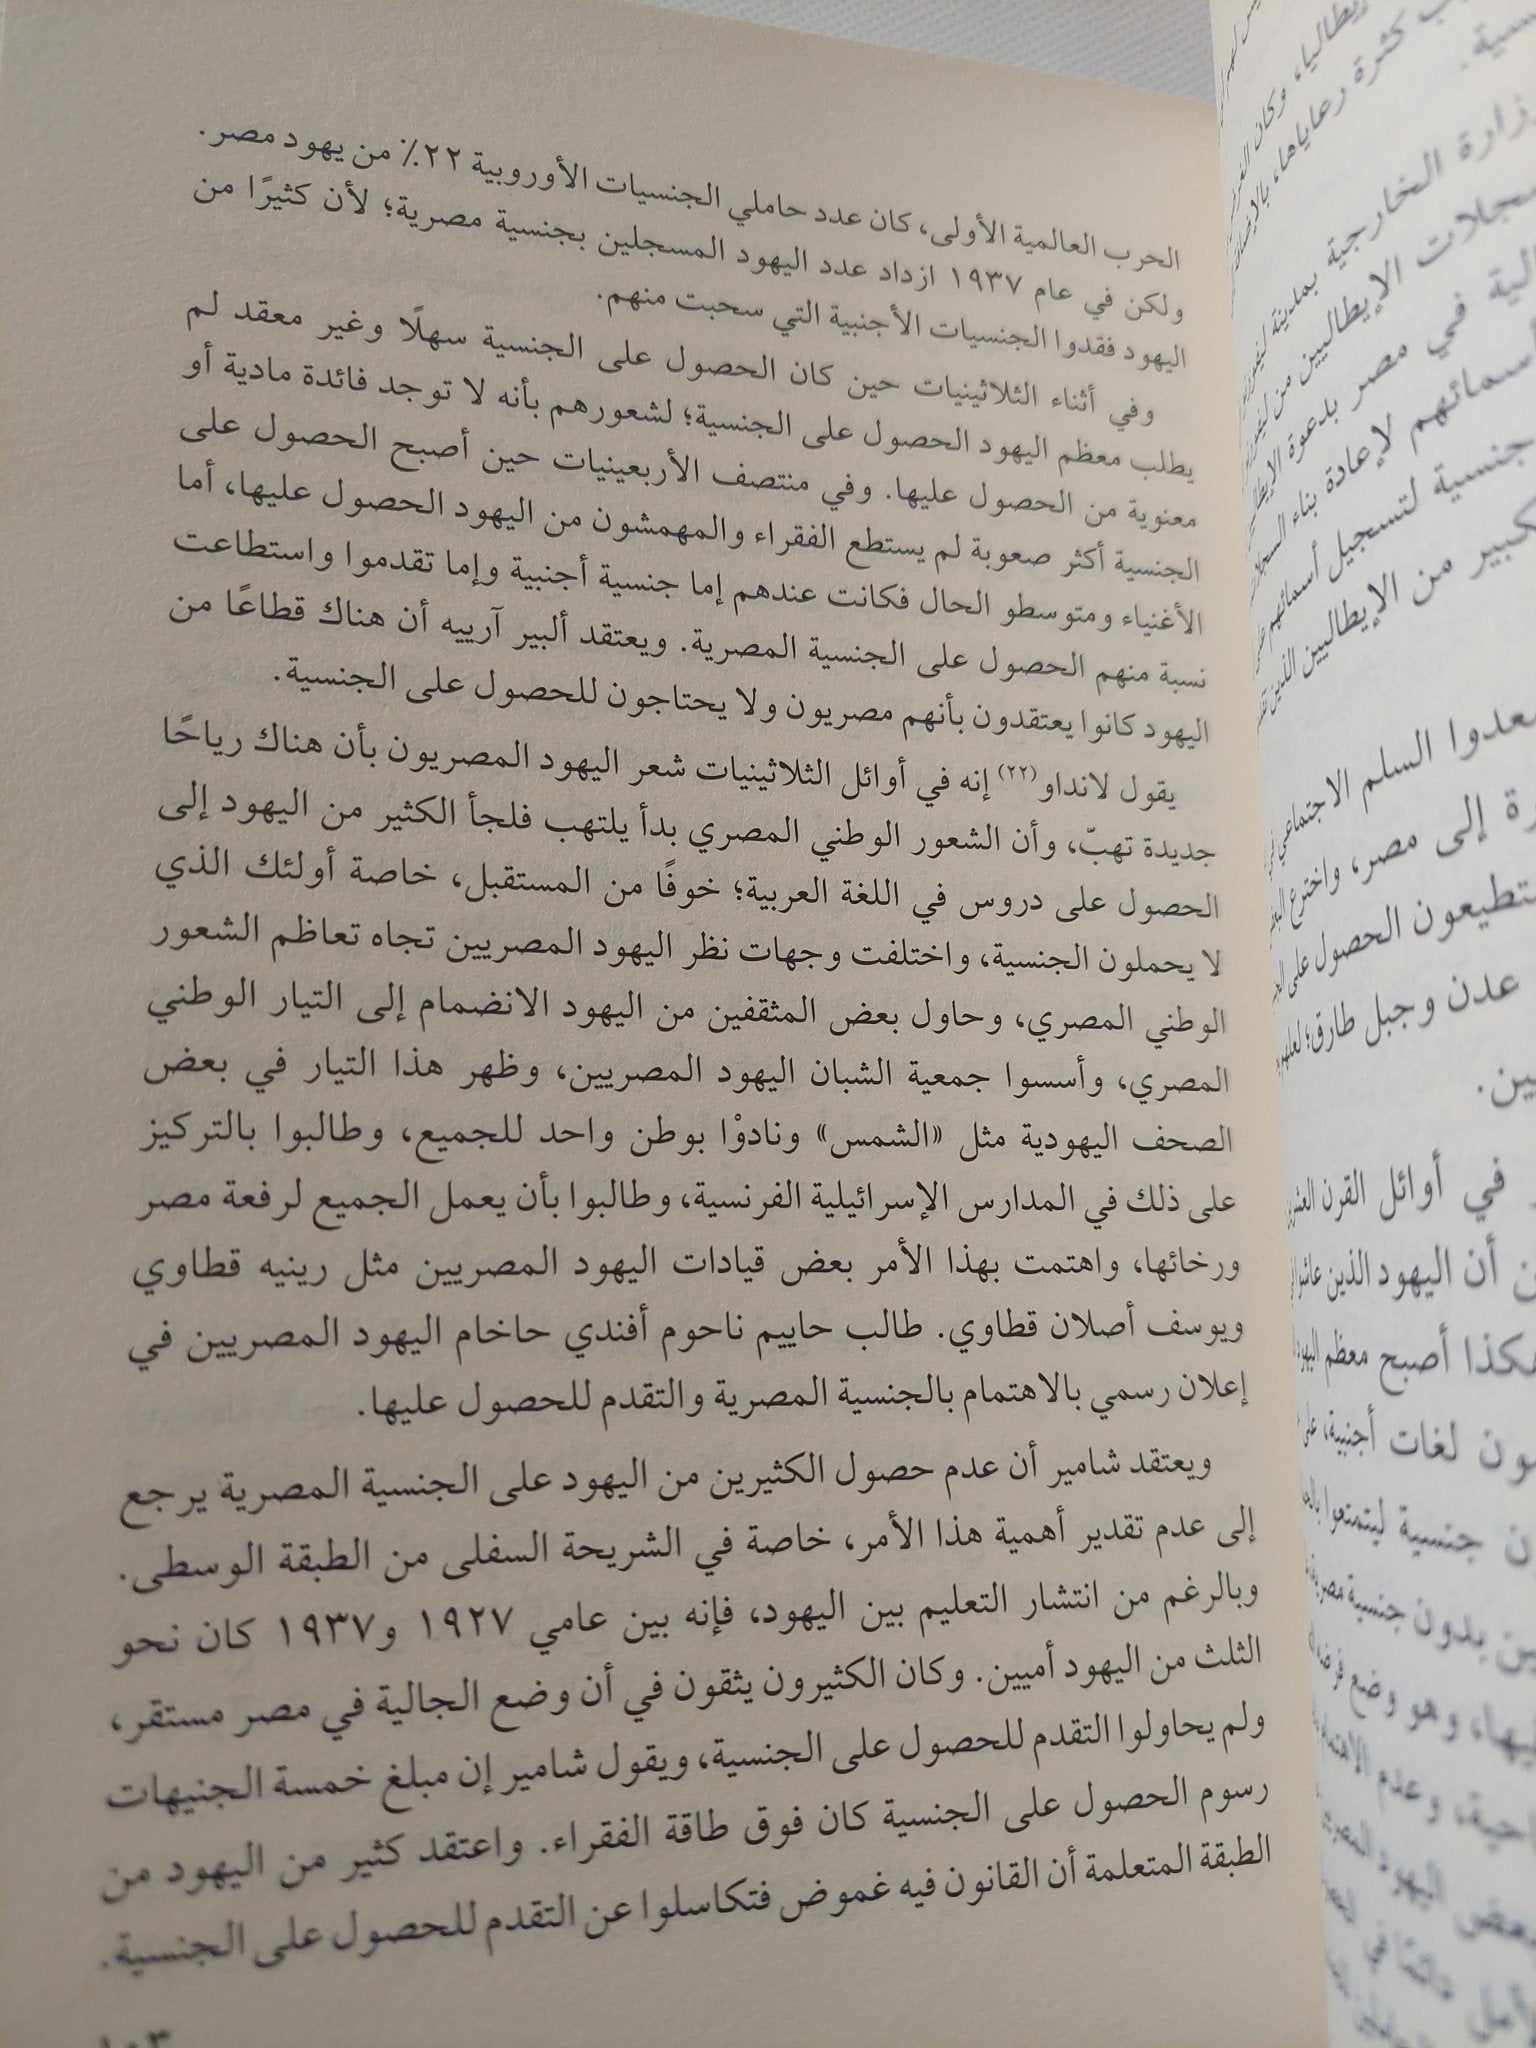 الحرب العالمية الأولى، كان عدد حاملي الجنسيات الأوروبية ٢٢٪ من يهود مصر.
ولكن في عام ١٩٣٧ ازداد عدد اليهود المسجلين بجنسية مصرية؛ لأن كثيرًا من
اليهود فقدوا الجنسيات الأجنبية التي سحبت منهم.
وفي أثناء الثلاثينيات حين كان الحصول على الجنسية سهلًا وغير معقد لم
يطلب معظم اليهود الحصول على الجنسية؛ لشعورهم بأنه لا توجد فائدة مادية أو
معنوية من الحصول عليها. وفي منتصف الأربعينيات حين أصبح الحصول على
الجنسية أكثر صعوبة لم يستطع الفقراء والمهمشون من اليهود الحصول عليها، أما
الأغنياء ومتوسطو الحال فكانت عندهم إما جنسية أجنبية وإما تقدموا واستطاعت
نسبة منهم الحصول على الجنسية المصرية. ويعتقد ألبير آرييه أن هناك قطاعًا من
اليهود كانوا يعتقدون بأنهم مصريون ولا يحتاجون للحصول على الجنسية.
يقول لانداو(٢٢) إنه في أوائل الثلاثينيات شعر اليهود المصريون بأن هناك رياحًا
جديدة تهبّ، وأن الشعور الوطني المصري بدأ يلتهب فلجأ الكثير من اليهود إلى
الحصول على دروس في اللغة العربية؛ خوفًا من المستقبل، خاصة أولئك الذي
لا يحملون الجنسية، واختلفت وجهات نظر اليهود المصريين تجاه تعاظم الشعور
الوطني المصري، وحاول بعض المثقفين من اليهود الانضمام إلى التيار الوطني
المصري، وأسسوا جمعية الشبان اليهود المصريين، وظهر هذا التيار في بعض
الصحف اليهودية مثل «الشمس» ونادوْا بوطن واحد للجميع، وطالبوا بالتركيز
على ذلك في المدارس الإسرائيلية الفرنسية، وطالبوا بأن يعمل الجميع لرفعة مصر
ورخائها، واهتمت بهذا الأمر بعض قيادات اليهود المصريين مثل رينيه قطاوي
ويوسف أصلان قطاوي. طالب حاييم ناحوم أفندي حاخام اليهود المصريين في
إعلان رسمي بالاهتمام بالجنسية المصرية والتقدم للحصول عليها.
ويعتقد شامير أن عدم حصول الكثيرين من اليهود على الجنسية المصرية يرجع
إلى عدم تقدير أهمية هذا الأمر، خاصة في الشريحة السفلى من الطبقة الوسطى.
وبالرغم من انتشار التعليم بين اليهود، فإنه بين عامي ١٩٢٧ و١٩٣٧ كان نحو
الثلث من اليهود أميين. وكان الكثيرون يثقون في أن وضع الجالية في مصر مستقر،
ولم يحاولوا التقدم للحصول على الجنسية، ويقول شامير إن مبلغ خمسة الجنيهات
رسوم الحصول على الجنسية كان فوق طاقة الفقراء. واعتقد كثير من اليهود من
الطبقة المتعلمة أن القانون فيه غموض فتكاسلوا عن التقدم للحصول على الجنسية.
إيطاليا، وكان
كثرة رعاياها،
الخارجية بمدينة
سجلات الإيطاليين من
في مصر بدعوة
أسمائهم لإعادة بناء
جنسية لتسجيل أسمائهم
كبير من الإيطاليين الذين
السلم الاجتماعي
إلى مصر، واخترع
الحصول على
عدن وجبل طارق؛
في أوائل القرن
أن اليهود الذين
أصبح معظم
لغات أجنبية،
جنسية ليتمتعوا
بدون جنسية
وهو وضع
وعدم